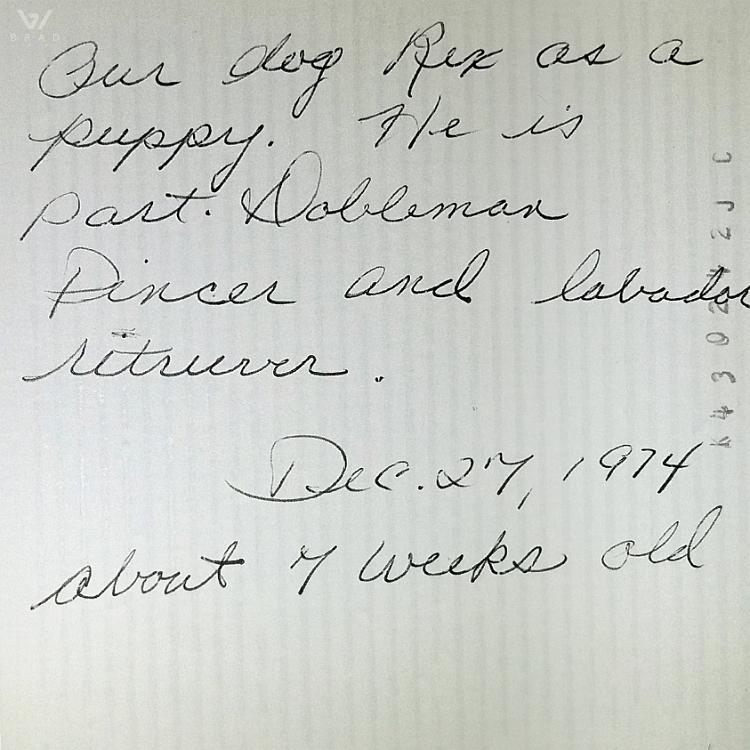 Our dog Rex as a
puppy. He is
part. Dobleman
Pincer and labador
retriever.
Dec. 27, 1974
about 7 weeks old
BRAD